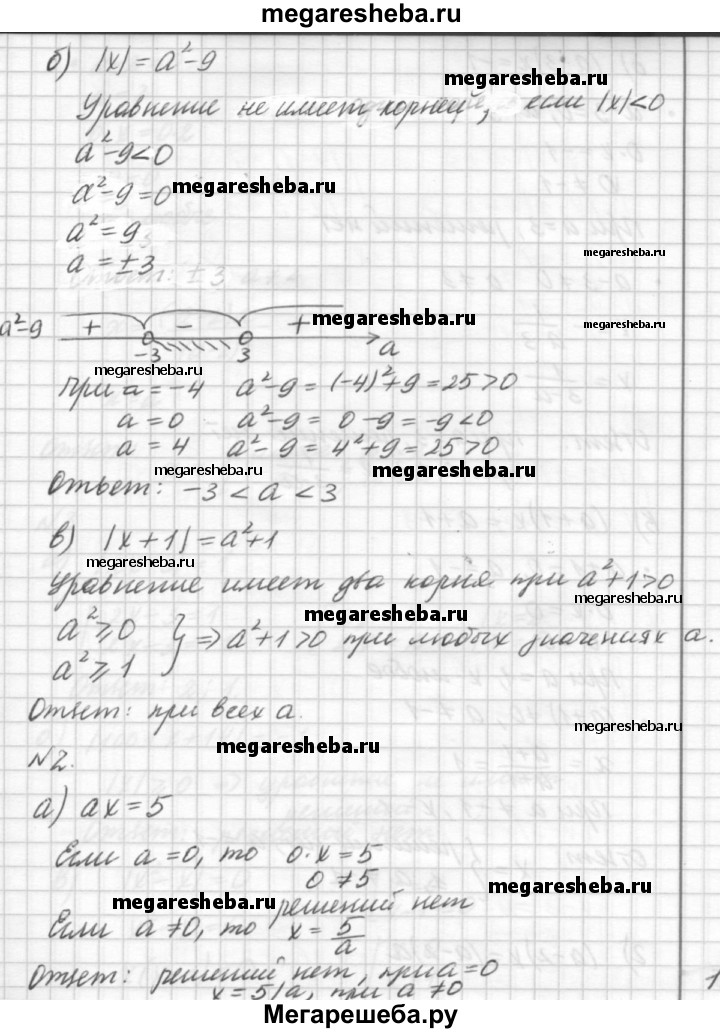 megaresheba.ru
б) |x| = a²-9
megaresheba.ru
Уравнение не имеет корней, если |x|<0.
a²-9<0
a²-9=0 megaresheba.ru
a² = 9
megaresheba.ru
a = ±3
a²-9 + - + megaresheba.ru
megaresheba.ru
-3 3 a
megaresheba.ru
При a = -4 a²-9 = (-4)²+9 = 25>0
a = 0 a²-9 = 0-9 = -9<0
a = 4 a²-9 = 4²+9 = 25>0
megaresheba.ru megaresheba.ru
Ответ: -3 < a < 3
в) |x+1| = a²+1
megaresheba.ru
Уравнение имеет два корня при a²+1>0
megaresheba.ru
megaresheba.ru
a² ⩾ 0
a² ⩾ 1 } ⇒ a²+1>0 при любых значениях a.
Ответ: при всех a.
megaresheba.ru
№2.
а) ax = 5
Если a = 0, то 0·x = 5
0 ≠ 5
megaresheba.ru
megaresheba.ru
решений нет
Если a ≠ 0, то x = 5/a
Ответ: решений нет, при a = 0
x = 5/a, при a ≠ 0
1
Мегарешеба.ру